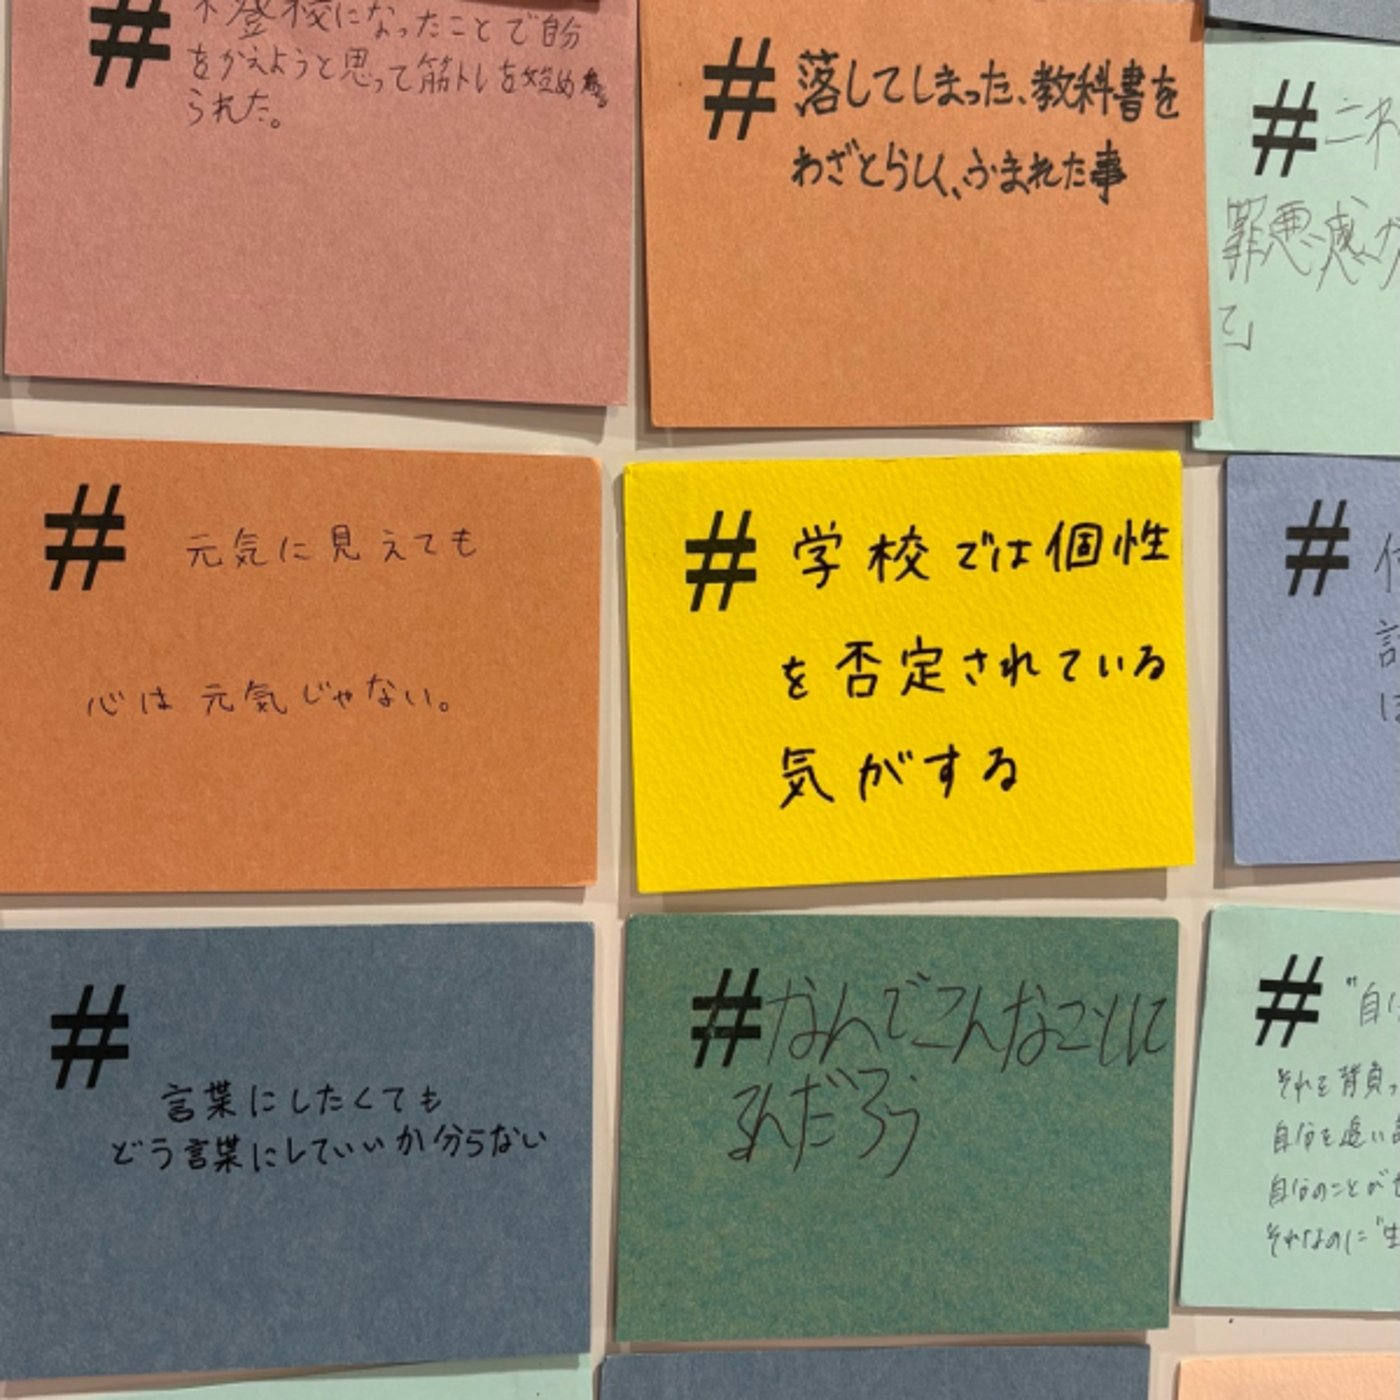 # 不登校になったことで自分
をかえようと思って筋トレを始め
られた。
# 落してしまった、教科書を
わざとらしく、ふまれた事
# 
罪悪感が
て」
# 元気に見えても
心は元気じゃない。
# 学校では個性
を否定されている
気がする
#
言
は
#
言葉にしたくても
どう言葉にしていいか分らない
# なんでこんなことに
るんだろう
# "自
それを背負っ
自分を追い
自分のことが
それなのに"生